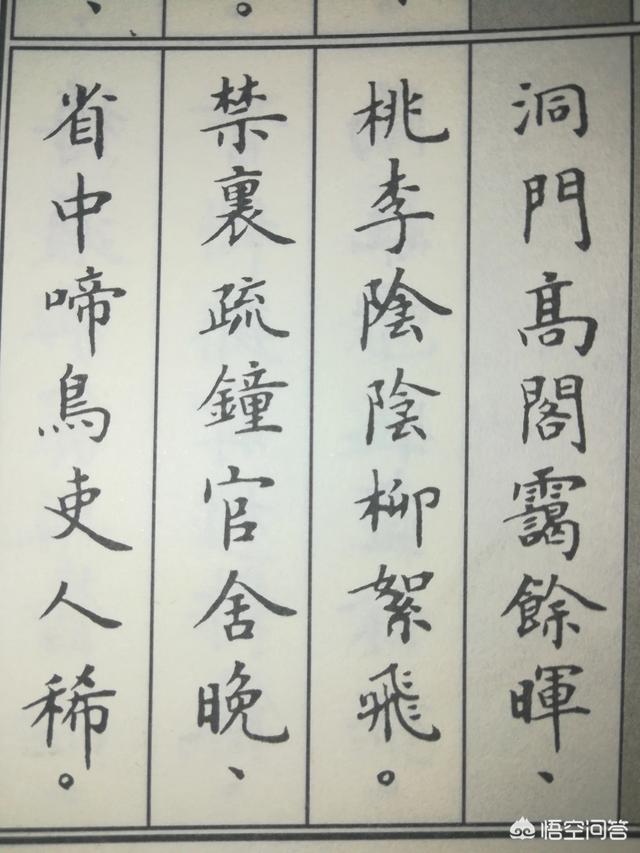 洞門高閣靄餘暉、
桃李陰陰柳絮飛。
禁裏疏鐘官舍晚、
省中啼鳥吏人稀。
悟空问答